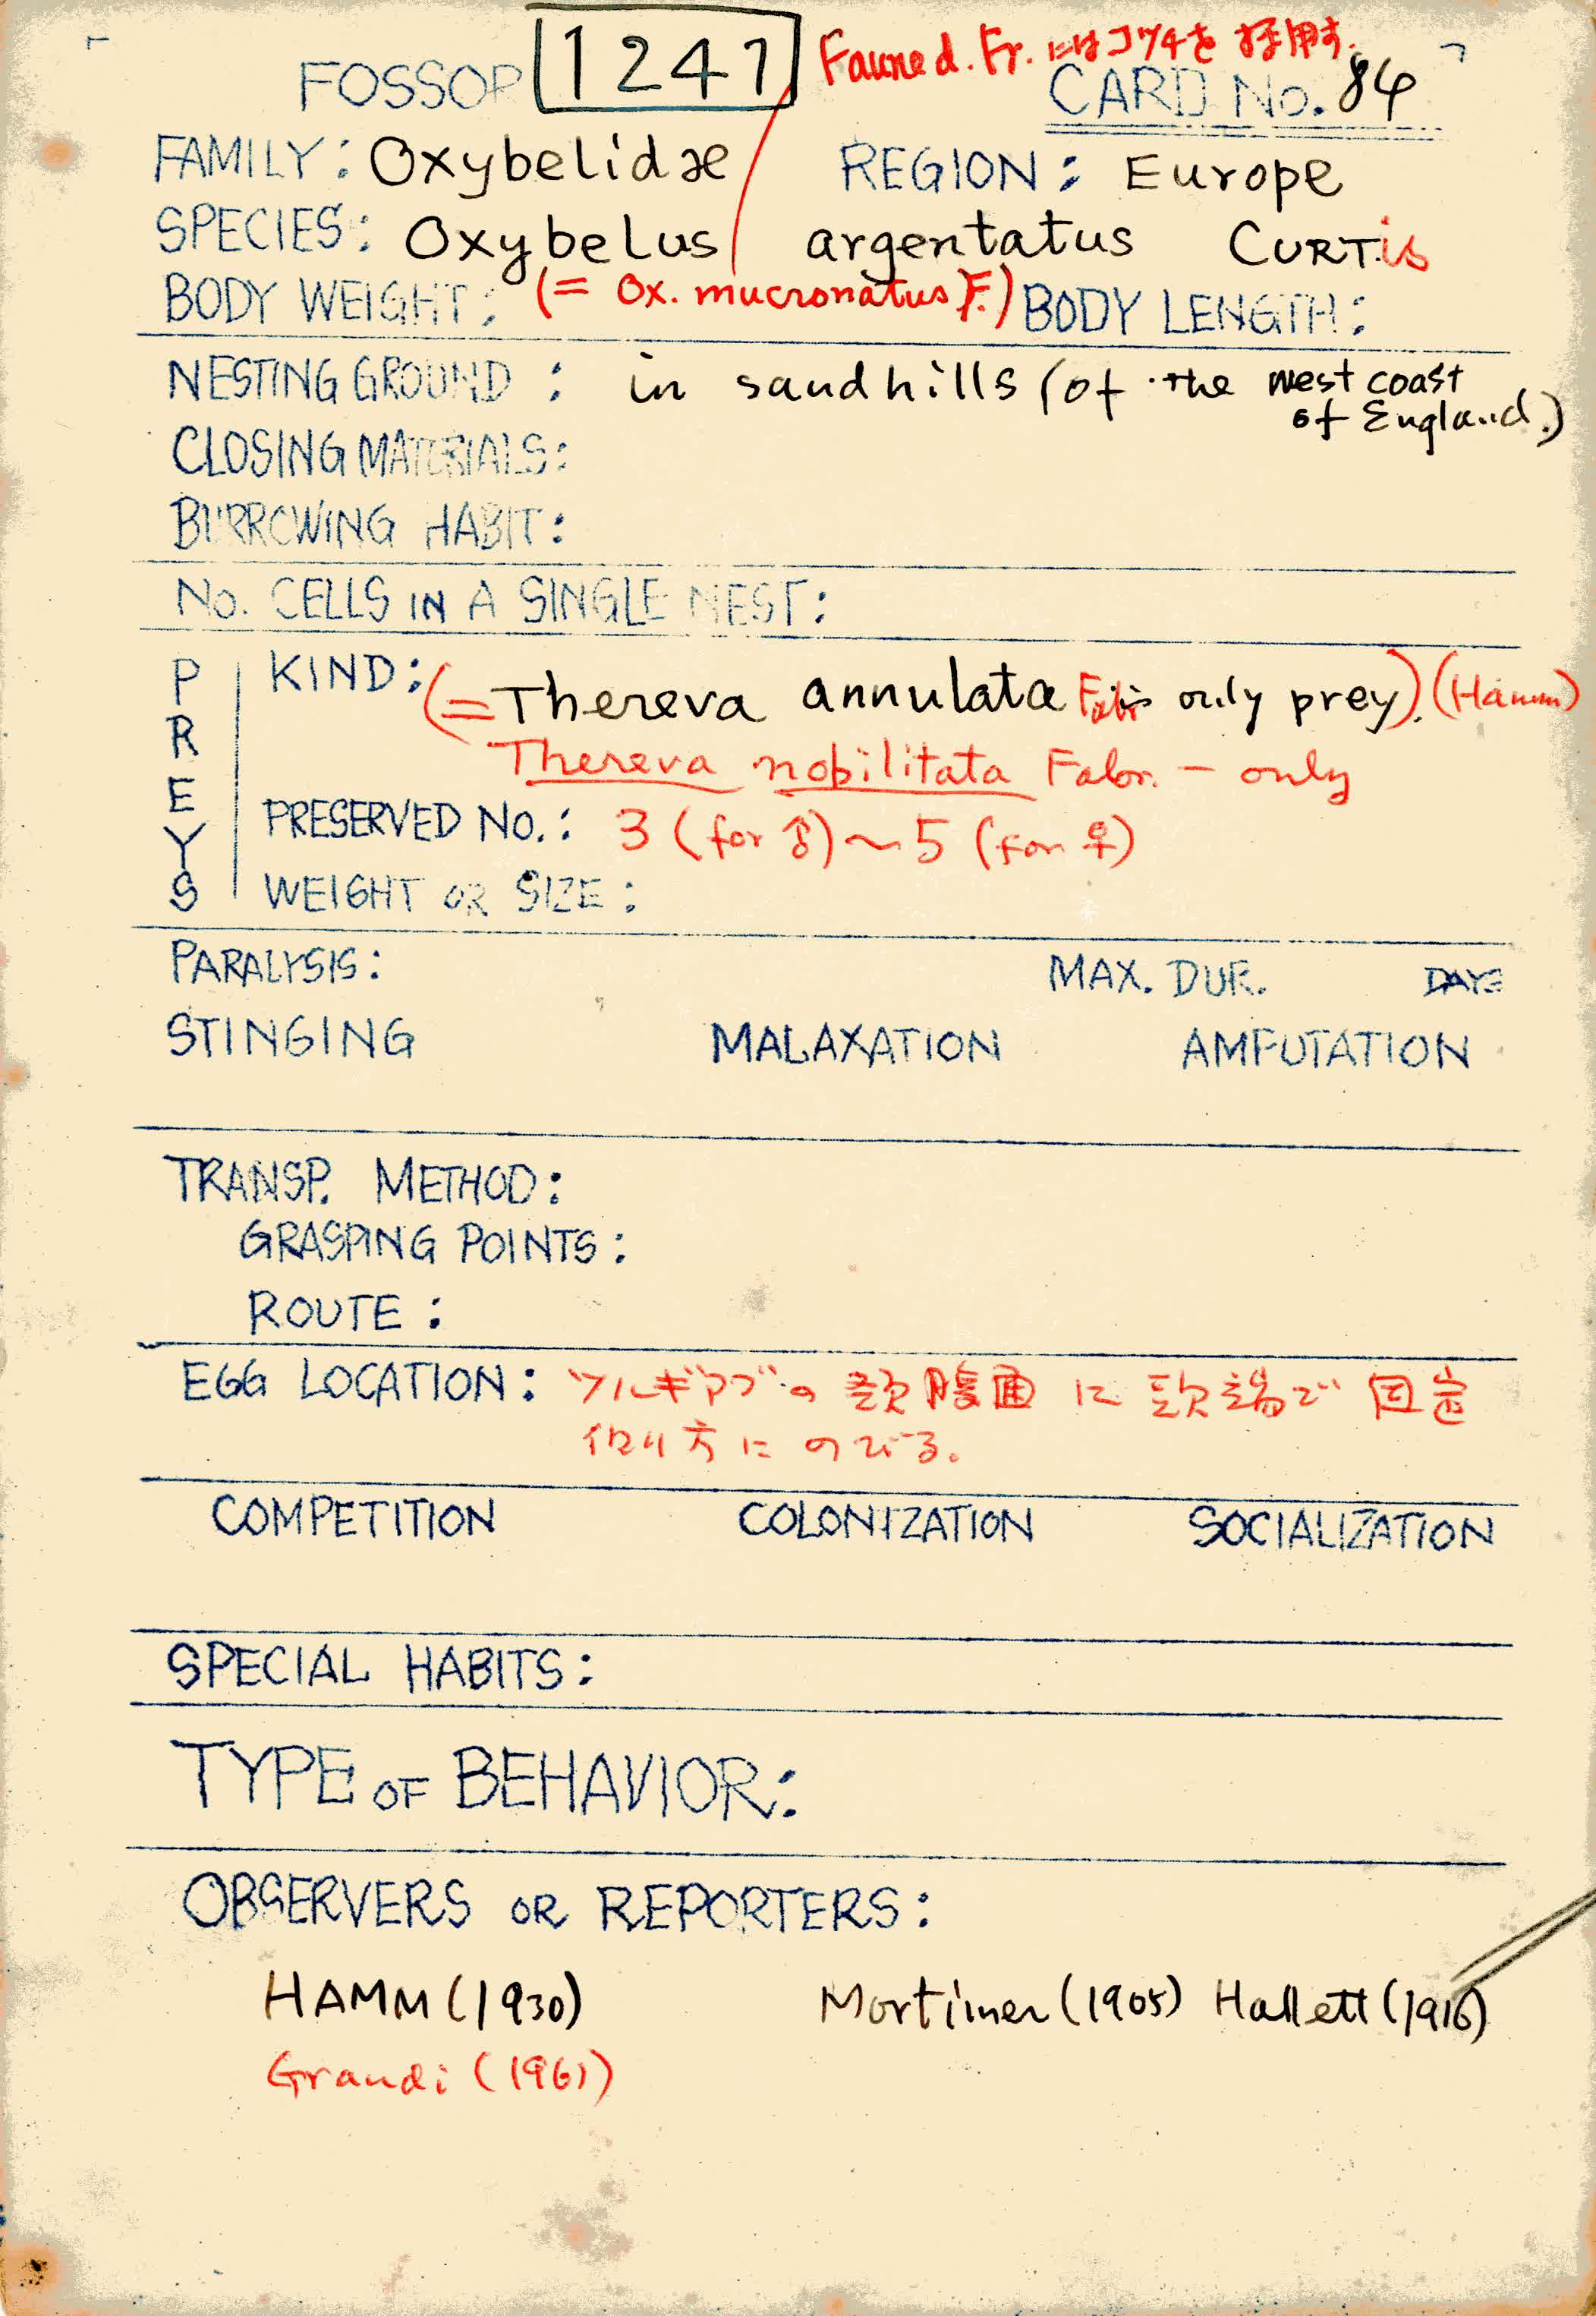 FOSSOR 1247 Faune d. Fr. にはコッチを採用す.
CARD No. 84
FAMILY: Oxybelidæ REGION: Europe
SPECIES: Oxybelus argentatus CURTis
BODY WEIGHT: (= Ox. mucronatus F.) BODY LENGTH:
NESTING GROUND : in sandhills (of the west coast
of England.)
CLOSING MATERIALS:
BURROWING HABIT:
No. CELLS IN A SINGLE NEST:
PREYS
KIND: (= Thereva annulata Fabr is only prey). (Hamm)
Thereva nobilitata Fabr. - only
PRESERVED NO.: 3 (for ♂) ~ 5 (for ♀)
WEIGHT OR SIZE :
PARALYSIS: MAX. DUR. DAYS
STINGING MALAXATION AMPUTATION
TRANSP. METHOD:
GRASPING POINTS :
ROUTE :
EGG LOCATION: ツルギアブの頚腹面に頭端で固定
側方にのびる.
COMPETITION COLONIZATION SOCIALIZATION
SPECIAL HABITS:
TYPE OF BEHAVIOR:
OBSERVERS OR REPORTERS:
HAMM (1930) Mortimer (1905) Hallett (1916)
Grandi (1961)